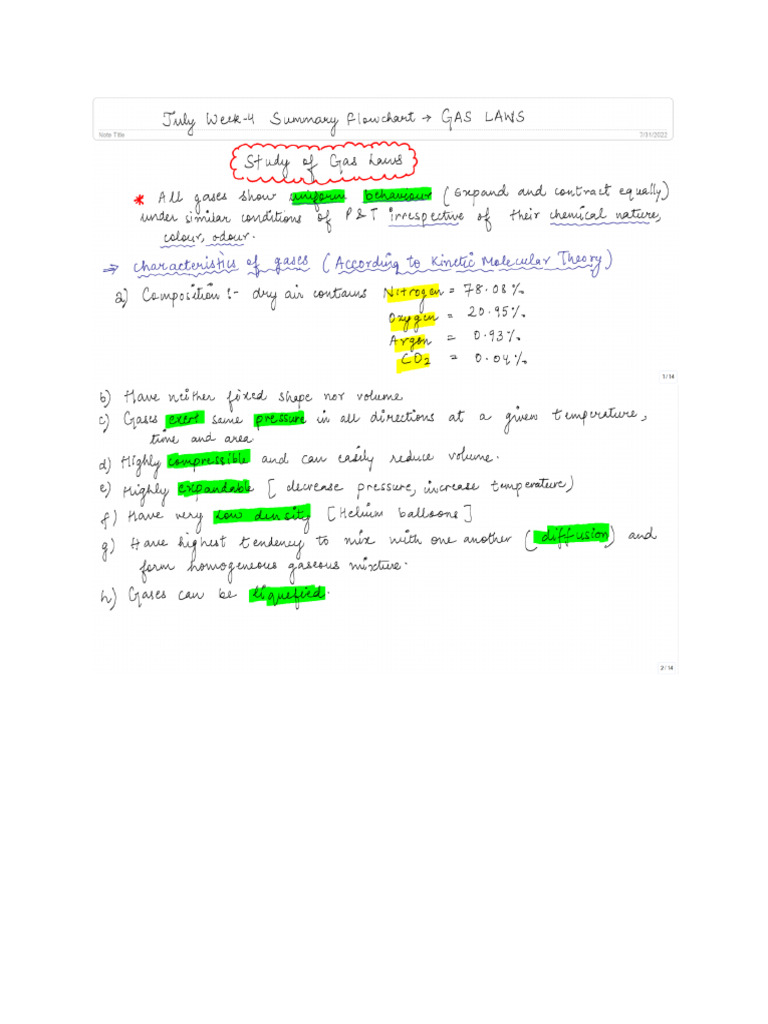 July Week-4 Summary flowchart → GAS LAWS
Note Title
7/31/2022
Study of Gas Laws
* All gases show uniform behaviour (Expand and contract equally)
under similar conditions of P & T irrespective of their chemical nature,
colour, odour.
⇒ Characteristics of gases (According to Kinetic Molecular Theory)
a) Composition :- dry air contains Nitrogen = 78.08%
Oxygen = 20.95%
Argon = 0.93%
CO2 = 0.04%
1 / 14
b) Have neither fixed shape nor volume
c) Gases exert same pressure in all directions at a given temperature,
time and area
d) Highly compressible and can easily reduce volume.
e) Highly expandable [ decrease pressure, increase temperature)
f) Have very low density [Helium balloons]
g) Have highest tendency to mix with one another (diffusion) and
form homogeneous gaseous mixture.
h) Gases can be liquefied.
2 / 14